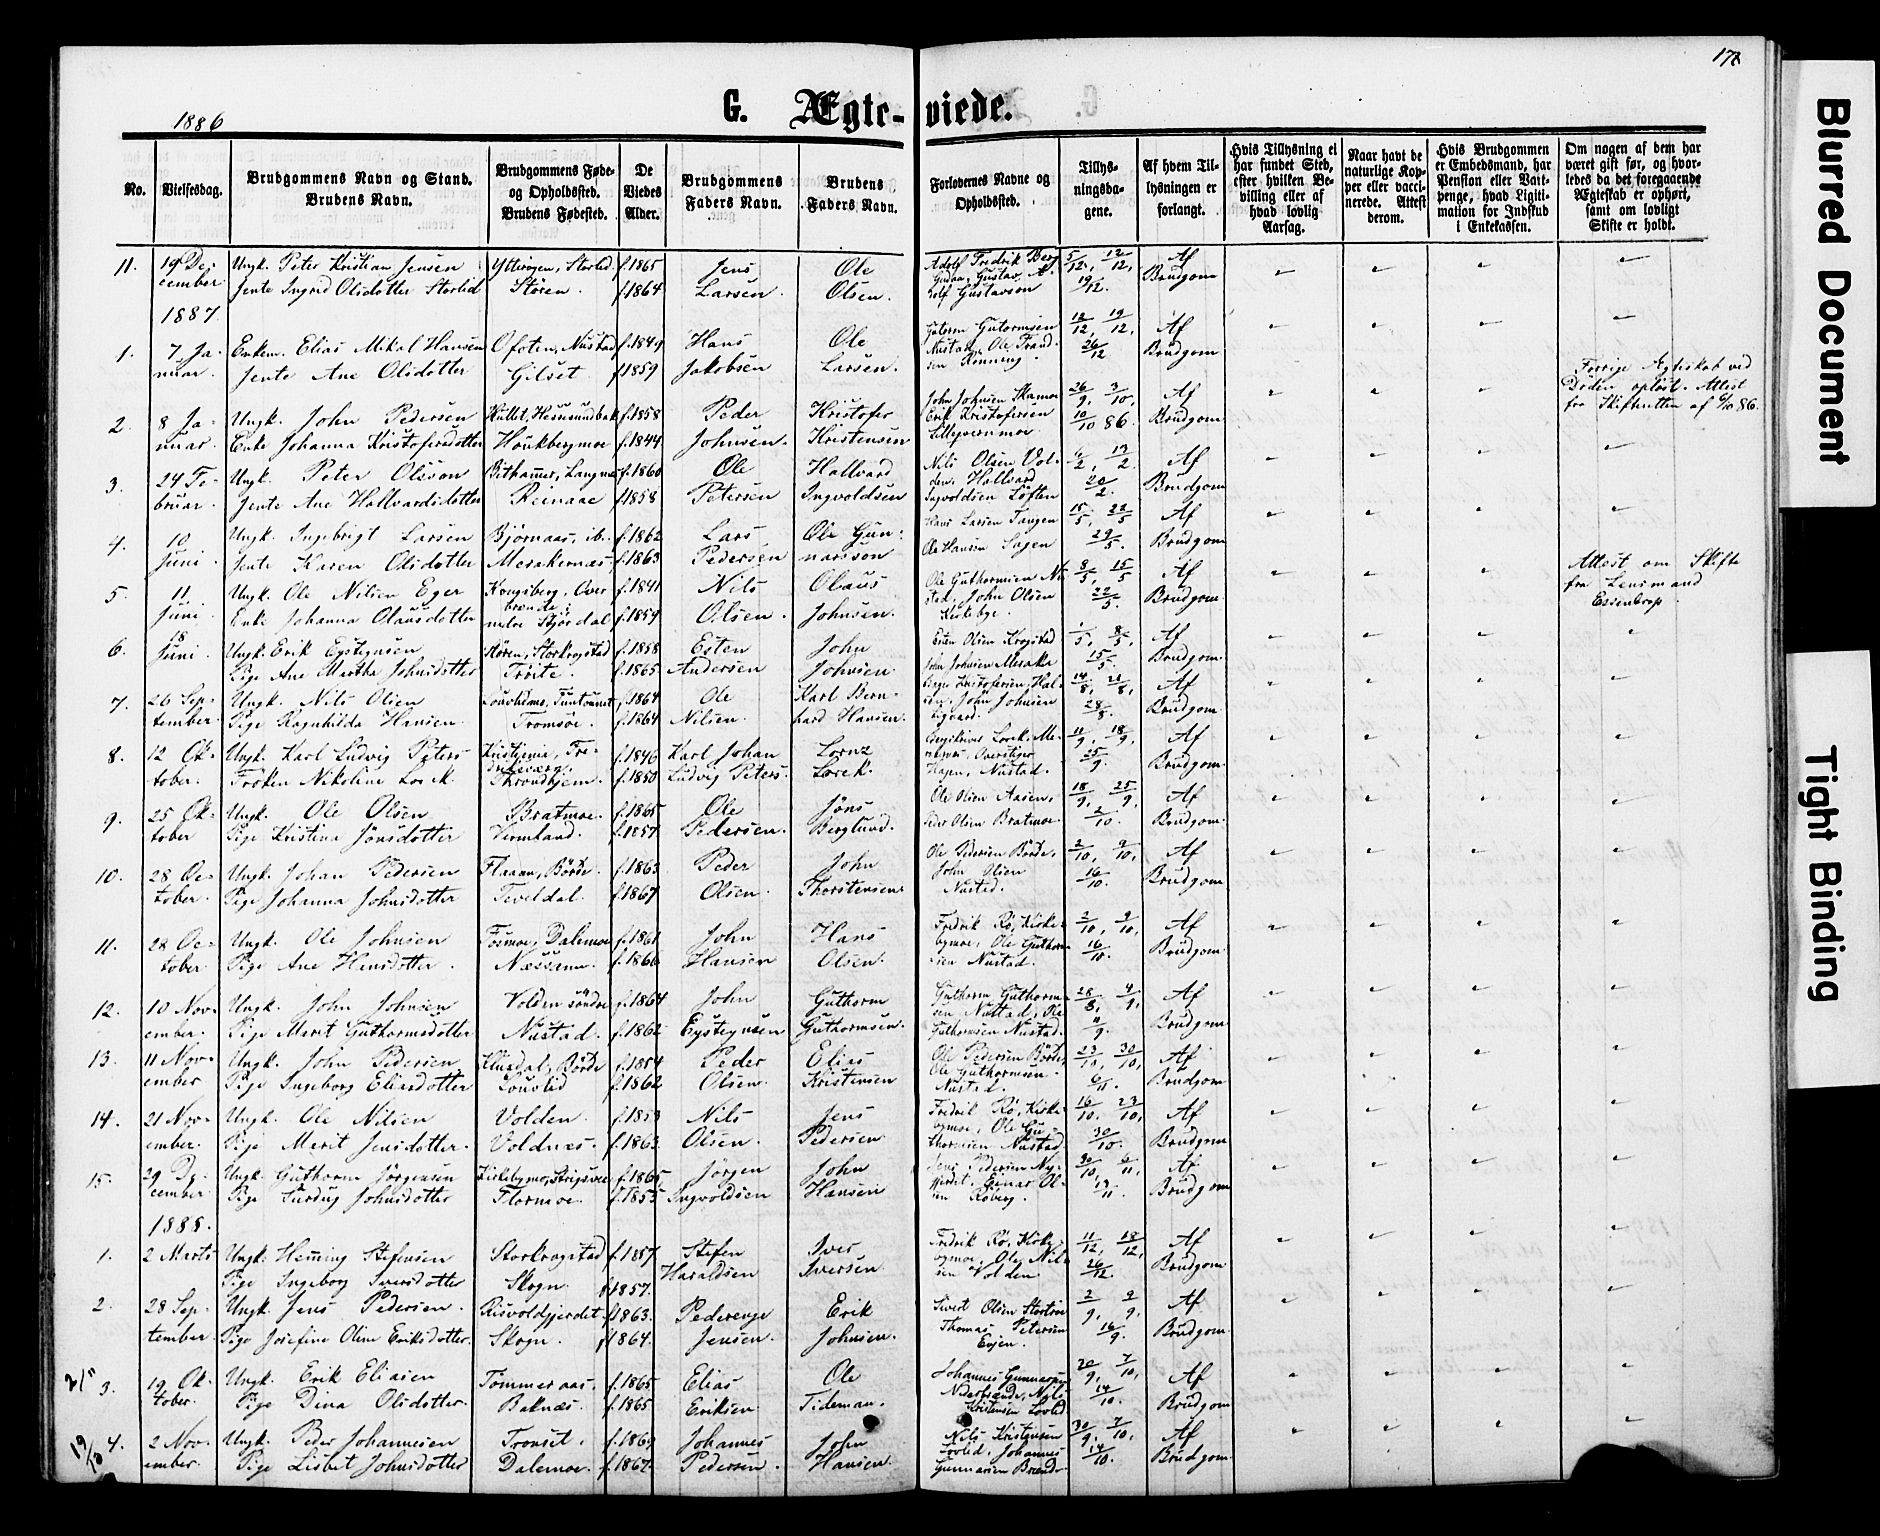 178
1886
G. Ægte-viede.
No.
Vielsesdag.
Brudgommens Navn og Stand.
Brudens Navn.
Brudgommens Føde-
og Opholdssted.
Brudens Fødested.
De
Viedes
Alder.
Brudgommens
Faders Navn.
Brudens
Faders Navn.
Forlovernes Navne og
Opholdssted.
Tillys-
ningsda-
gene.
Af hvem Til-
lysningen er
forlangt.
Hvis Tillysning ei
har fundet Sted,
efter hvilken Be-
villing eller af
hvad lovlig
Aarsag.
Naar havt de
naturlige Kop-
per eller vacci-
nerede. Attest
derom.
Hvis Brudgommen
er Embedsmand, har
Pension eller Vart-
penge, hvad Ligiti-
mation for Indskud
i Enkekassen.
Om nogen af dem har
været gift før, og hvor-
ledes da det foregaaende
Ægteskab er ophørt,
samt om lovligt
Skifte er holdt.
11. 19 De- Ungk. Peter Kristian Jensen Ytterøgen, Storlid f. 1865 Jens Ole Adolf Fredrik Berg 5/12, 12/12, Af
cember Jente Ingrid Olsdotter Storlid Støren. f. 1864 Larsen. Olsen. Gustav A- dolf Gustavson 19/12. Brudgom
1887
1. 7 Ja- Enkem. Elias Mikal Hansen Ofoten, Nustad f. 1849 Hans Ole Gutorm Gutormsen 12/12, 19/12, Af
nuar. Jente Ane Olsdotter Gilset. f. 1859 Jakobsen Larsen. Nustad, Ole Trond- sen Rönning. 26/12 Brudgom
Forrige Ægteskab ved
Døden opløst. Attest
fra Skifteretten af 6/10 86.
2. 8 Ja- Ungk. John Pedersen f. 1858 Peder Kristofer John Johnsen Skamoe 26/9, 3/10, Af
nuar. Enke Johanna Kristofersdotter Houkbergmoe f. 1844 Johnsen. Kristensen Erik Kristofersen 10/10 86. Brudgom
3. 24 Fe- Ungk. Peter Olsson f. 1860 Ole Hallvard Nils Olsen Vol- 6/2, 13/2 Af
bruar. Jente Ane Hallvardsdotter Reinaae f. 1858 Petersen Ingvoldsen den, Hallvard Ingvoldsen Løften 20/2. Brudgom
4. 10 Ungk. Ingebrigt Larsen Bjørnaas, ib. f. 1862 Lars Ole Gun- Hans Larsen Tangen 15/5, 22/5 Af
Juni. Jente Karen Olsdotter Merakernæs. f. 1863 Pedersen narsson Ole Hansen Sagen 29/5. Brudgom
5. 11 Ungk. Ole Nilsen Eger Kongsberg, Over f. 1841 Nils Olaus Ole Guthormsen Nu- 8/5, 15/5 Af
Juni. Enke Johanna Olausdotter nedre Stjørdal f. 1859 Olsen. Johnsen. stad, John Olsen Kirkebye. 22/5. Brudgom
Attest om Skifte
fra Lensmand
Essendrop
6. 18 Ungk. Erik Eystegnsen Støren, Storkrogstad f. 1858 Esten John Esten Olsen Krogstad 1/5, 8/5, Af
Juni. Pige Ane Martha Johnsdotter Trøite. f. 1865 Andersen Johnsen John Johnsen Meraker 15/5. Brudgom.
7. 26 Sep- Ungk. Nils Olsen f. 1864 Ole Karl Bern- Kristofersen, Hal- 14/8, 21/8, Af
tember. Pige Ragnhilda Hansen. Tromsøe. f. 1864 Nilsen. hard Hansen. sen, John Johnsen 28/8. Brudgom.
8. 12 Ok- Ungk. Karl Ludvig Peters Kristjania, Fre- f. 1846 Karl Johan Lornz Lorck, Me- 11/9, 18/9, Af
tober. Frøken Nikoline Lorck. Throndhjem. f. 1850 Ludvig Peters. Lorck. Hagen, Nustad. 25/9. Brudgom.
9. 25 Ok- Ungk. Ole Olsen Bratmoe. f. 1865 Ole Jöns Ole Olsen Aasen, 18/9, 25/9, Af
tober Pige Kristina Jönsdotter Vermland. f. 1857 Pedersen. Berglund. Peder Olsen Bratmoe. 2/10. Brudgom.
10. 28 Oc- Ungk. Johan Pedersen Flaaan, Börde. f. 1863 Peder John Ole Pedersen Börde, 2/10, 9/10, Af
tober. Pige Johanna Johnsdotter Teveldal. f. 1867 Olsen. Thorstensen. John Olsen Nustad. 16/10. Brudgom
11. 28 Oc- Ungk. Ole Johnsen Fosmoe, Dalemoe f. 1861 John Hans Fredrik Rø, Kirke- 2/10, 9/10, Af
tober Pige Ane Hansdotter. f. 1866 Hansen Olsen. bymoe, Ole Guthorm- sen Nustad. 16/10. Brudgom.
12. 10 Nov- Ungk. John Johnsen Volden söndre f. 1864 John Guthorm Guthorm Guthorm- 28/8, 4/9, Af
ember. Pige Merit Guthormsdotter Nustad. f. 1862 Eystegnsen Guthormsen. sen Nustad, Ole Guthormsen Nustad. 11/9. Brudgom.
13. 11 Nov- Ungk. John Pedersen Börde f. 1854 Peder Elias Ole Pedersen Börde, 23/10, 30/10, Af
ember Pige Ingeborg Eliasdotter f. 1862 Olsen. Kristensen Ole Guthormsen Nustad. 6/11. Brudgom
14. 21 Nov- Ungk. Ole Nilsen Volden. f. 1859 Nils Jens Fredrik Rø, Kirke- 16/10. 23/10, Af
ember. Pige Merit Jensdotter. Voldnæs. f. 1863. Olsen. Pedersen bymoe, Ole Gu- thormsen Nustad 30/10. Brudgom
15. 29 De- Ungk. Guthorm Jörgensen Kirkebymo, f. 1865, Jörgen John Jens Pedersen Ny- 30/10, 6/11, Af
cember Pige Gurdug Johnsdotter Flornæs. f. 1855 Ingvoldsen Hansen gjerdet, Einar Ol- sen Röberg. 13/11. Brudgom
1888.
1. 2 Marts Ungk. Heming Stefensen Storkrogstad f. 1857 Stefen Iver Fredrik Rø, Kirke- 11/12, 18/12, Af
Pige Ingeborg Iversdotter Skogn. f. 1857. Haraldsen Iversen bymoe, Ole Nil- sen Volden. 26/12. Brudgom
2. 28 Sep- Ungk. Jens Pedersen. Risvoldgjerdet f. 1863. Peder Erik Sivert Olsen 2/9, 9/9, Af
tember. Pige Josefine Oline Eriksdotter. Skogn. f. 1864. Jensen. Johnsen. Thomas Petersen Evjen. 16/9. Brudgom.
3. 19 Ok- Ungk. Erik Eliasen Tömmeraas. f. 1865 Elias Ole Johannes Gunnarsen 30/9, 7/10, Af
tober. Pige Dina Olsdotter. Baknæs. f. 1865 Eriksen Tideman. Kristensen Lovlid 14/10. Brudgom
4. 2 Nov- Ungk. Peder Johannesen Tronset. f. 1869 Johannes John Nils Kristensen 30/9, 7/10, Af
ember. Pige Lisbet Johnsdotter Dalemoe. f. 1867. Pedersen. Hansen Lovlid, Johannes Gunnarsen Brænde 14/10. Brudgom.
Blurred Document
Tight Binding